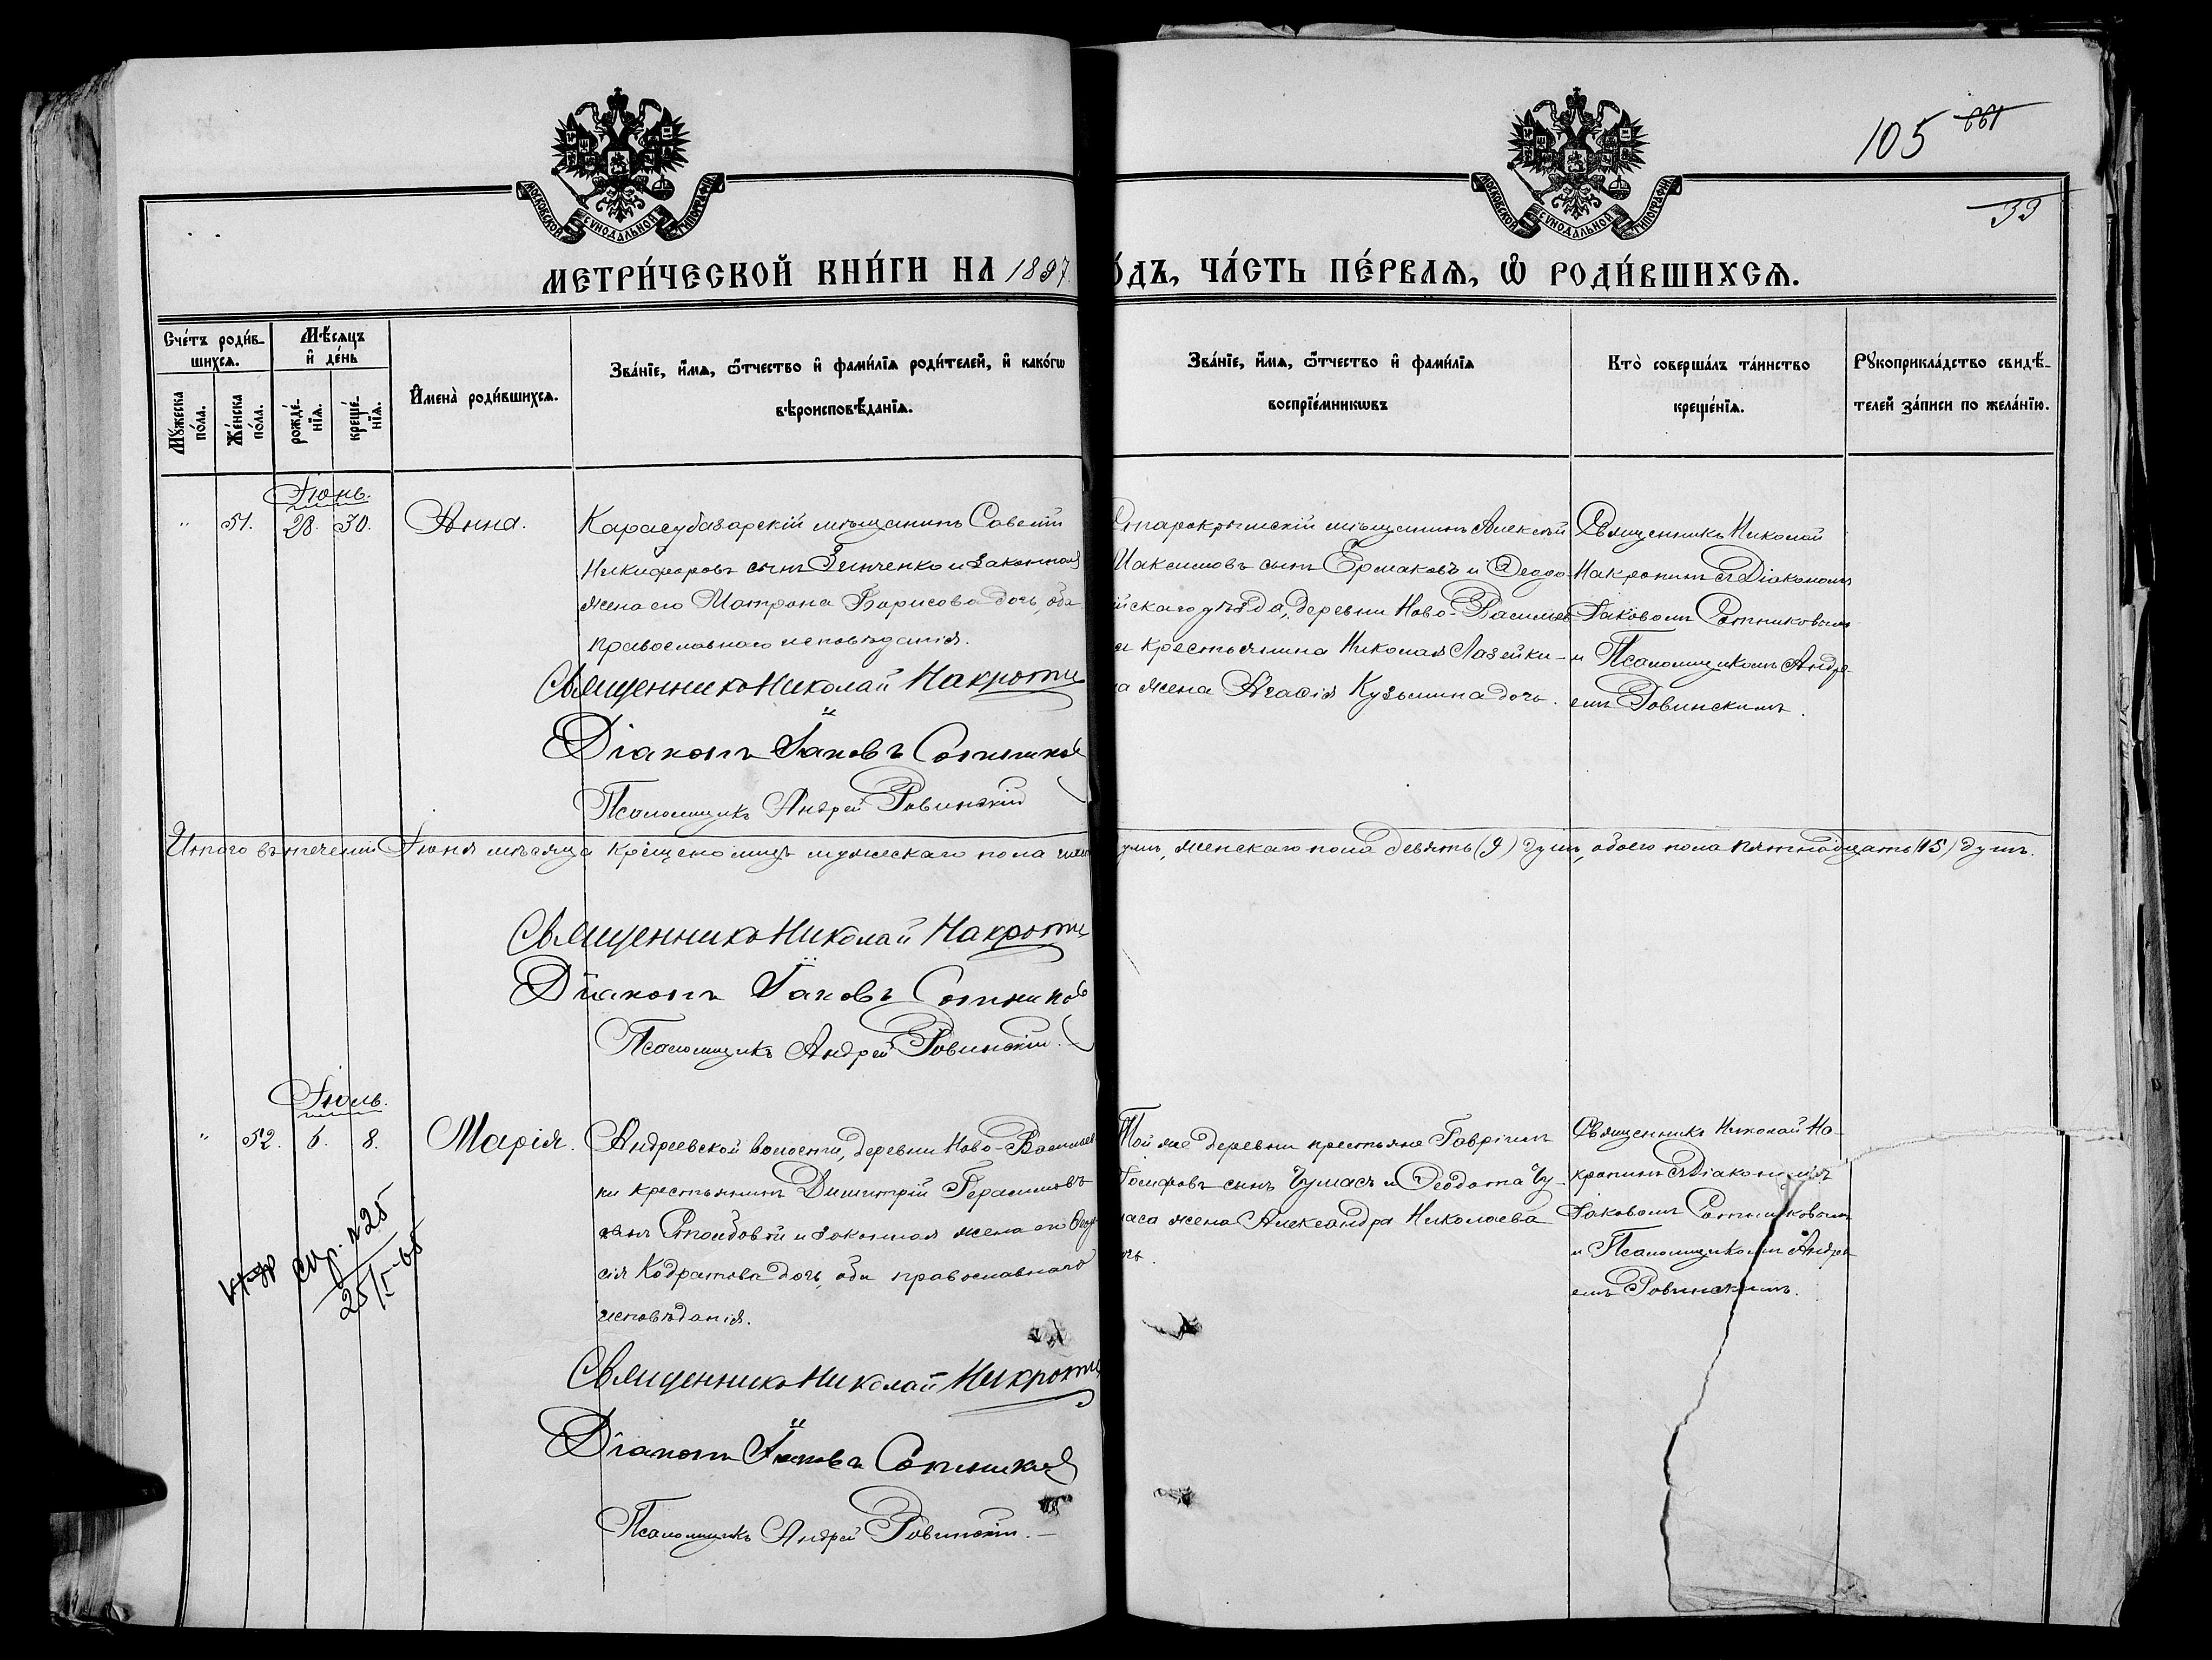 МОСКОВСКОЙ СѴНОДАЛЬНОЙ ТИПОГРАФІИ
МОСКОВСКОЙ СѴНОДАЛЬНОЙ ТИПОГРАФІИ
105 661
33
МЕТРИ́ЧЕСКОЙ КНИ́ГИ НА 1897
О́ДЪ, ЧА́СТЬ ПЕ́РВАѦ, Ѿ РОДИ́ВШИХСѦ.
Сче́тъ роди́в-
шихсѧ.
Мѣ́сѧцъ
и҆ де́нь
Мꙋ́жеска
по́ла.
Же́нска
по́ла.
рожде́-
нїѧ.
креще́-
нїѧ.
И҆мена̀ роди́вшихсѧ.
Зва́нїе, и҆́мѧ, ѻ҆́тчество и҆ фамі́лїѧ роди́телей, и҆ како́гѡ
вѣроисповѣ́данїѧ.
Зва́нїе, и҆́мѧ, ѻ҆́тчество и҆ фамі́лїѧ
воспрїе́мникѡвъ
Кто̀ соверша́лъ та́инство
креще́нїѧ.
Рꙋкоприкла́дство свидѣ́-
телей за́писи по жела́нїю.
Іюнь.
" 51. 28. 30. Анна.
Карасубазарскій мѣщанинъ Савелій
Никифоровъ сынъ Зинченко и законная
жена его Матрона Борисова дочь, оба
православнаго исповѣданія.
Священникъ Николай Накропи
Діаконъ Іаковъ Сотников
Псаломщикъ Андрей Ровинскій
Старокрымскій мѣщанинъ Алексѣй
Максимовъ сынъ Ермаковъ и Ѳеодо-
йскаго уѣзда, деревни Ново-Васильев
а крестьянина Николая Лазейки-
на жена Агафія Кузьмина дочь.
Священникъ Николай
Накропинъ съ Діакономъ
Іаковомъ Сотниковымъ
и Псаломщикомъ Андре-
емъ Ровинскимъ.
Итого въ теченіи Іюня мѣсяца крещено лицъ мужескаго пола шес
душъ, женскаго пола девять (9) душъ, обоего пола пятнадцать (15) душъ.
Священникъ Николай Накропи
Діаконъ Іаковъ Сотников
Псаломщикъ Андрей Ровинскій.
Іюль.
" 52. 6. 8. Марія.
Андреевской волости, деревни Ново-Васильев
ки крестьянинъ Димитрій Герасимовъ
сынъ и законная жена его Ѳеодо
сія Кодратова дочь, оба православнаго
исповѣданія.
Священникъ Николай Накропи
Діаконъ Іаковъ Сотников
Псаломщикъ Андрей Ровинскій.
Той же деревни крестьяне Гавріилъ
Іосифовъ сынъ Чумасъ и Ѳедота Чу-
маса жена Александра Николаева
чь.
Священникъ Николай На-
кропинъ съ Діакономъ
Іаковомъ Сотниковымъ
и Псаломщикомъ Андре-
емъ Ровинскимъ.
спр. №25
25/I-65